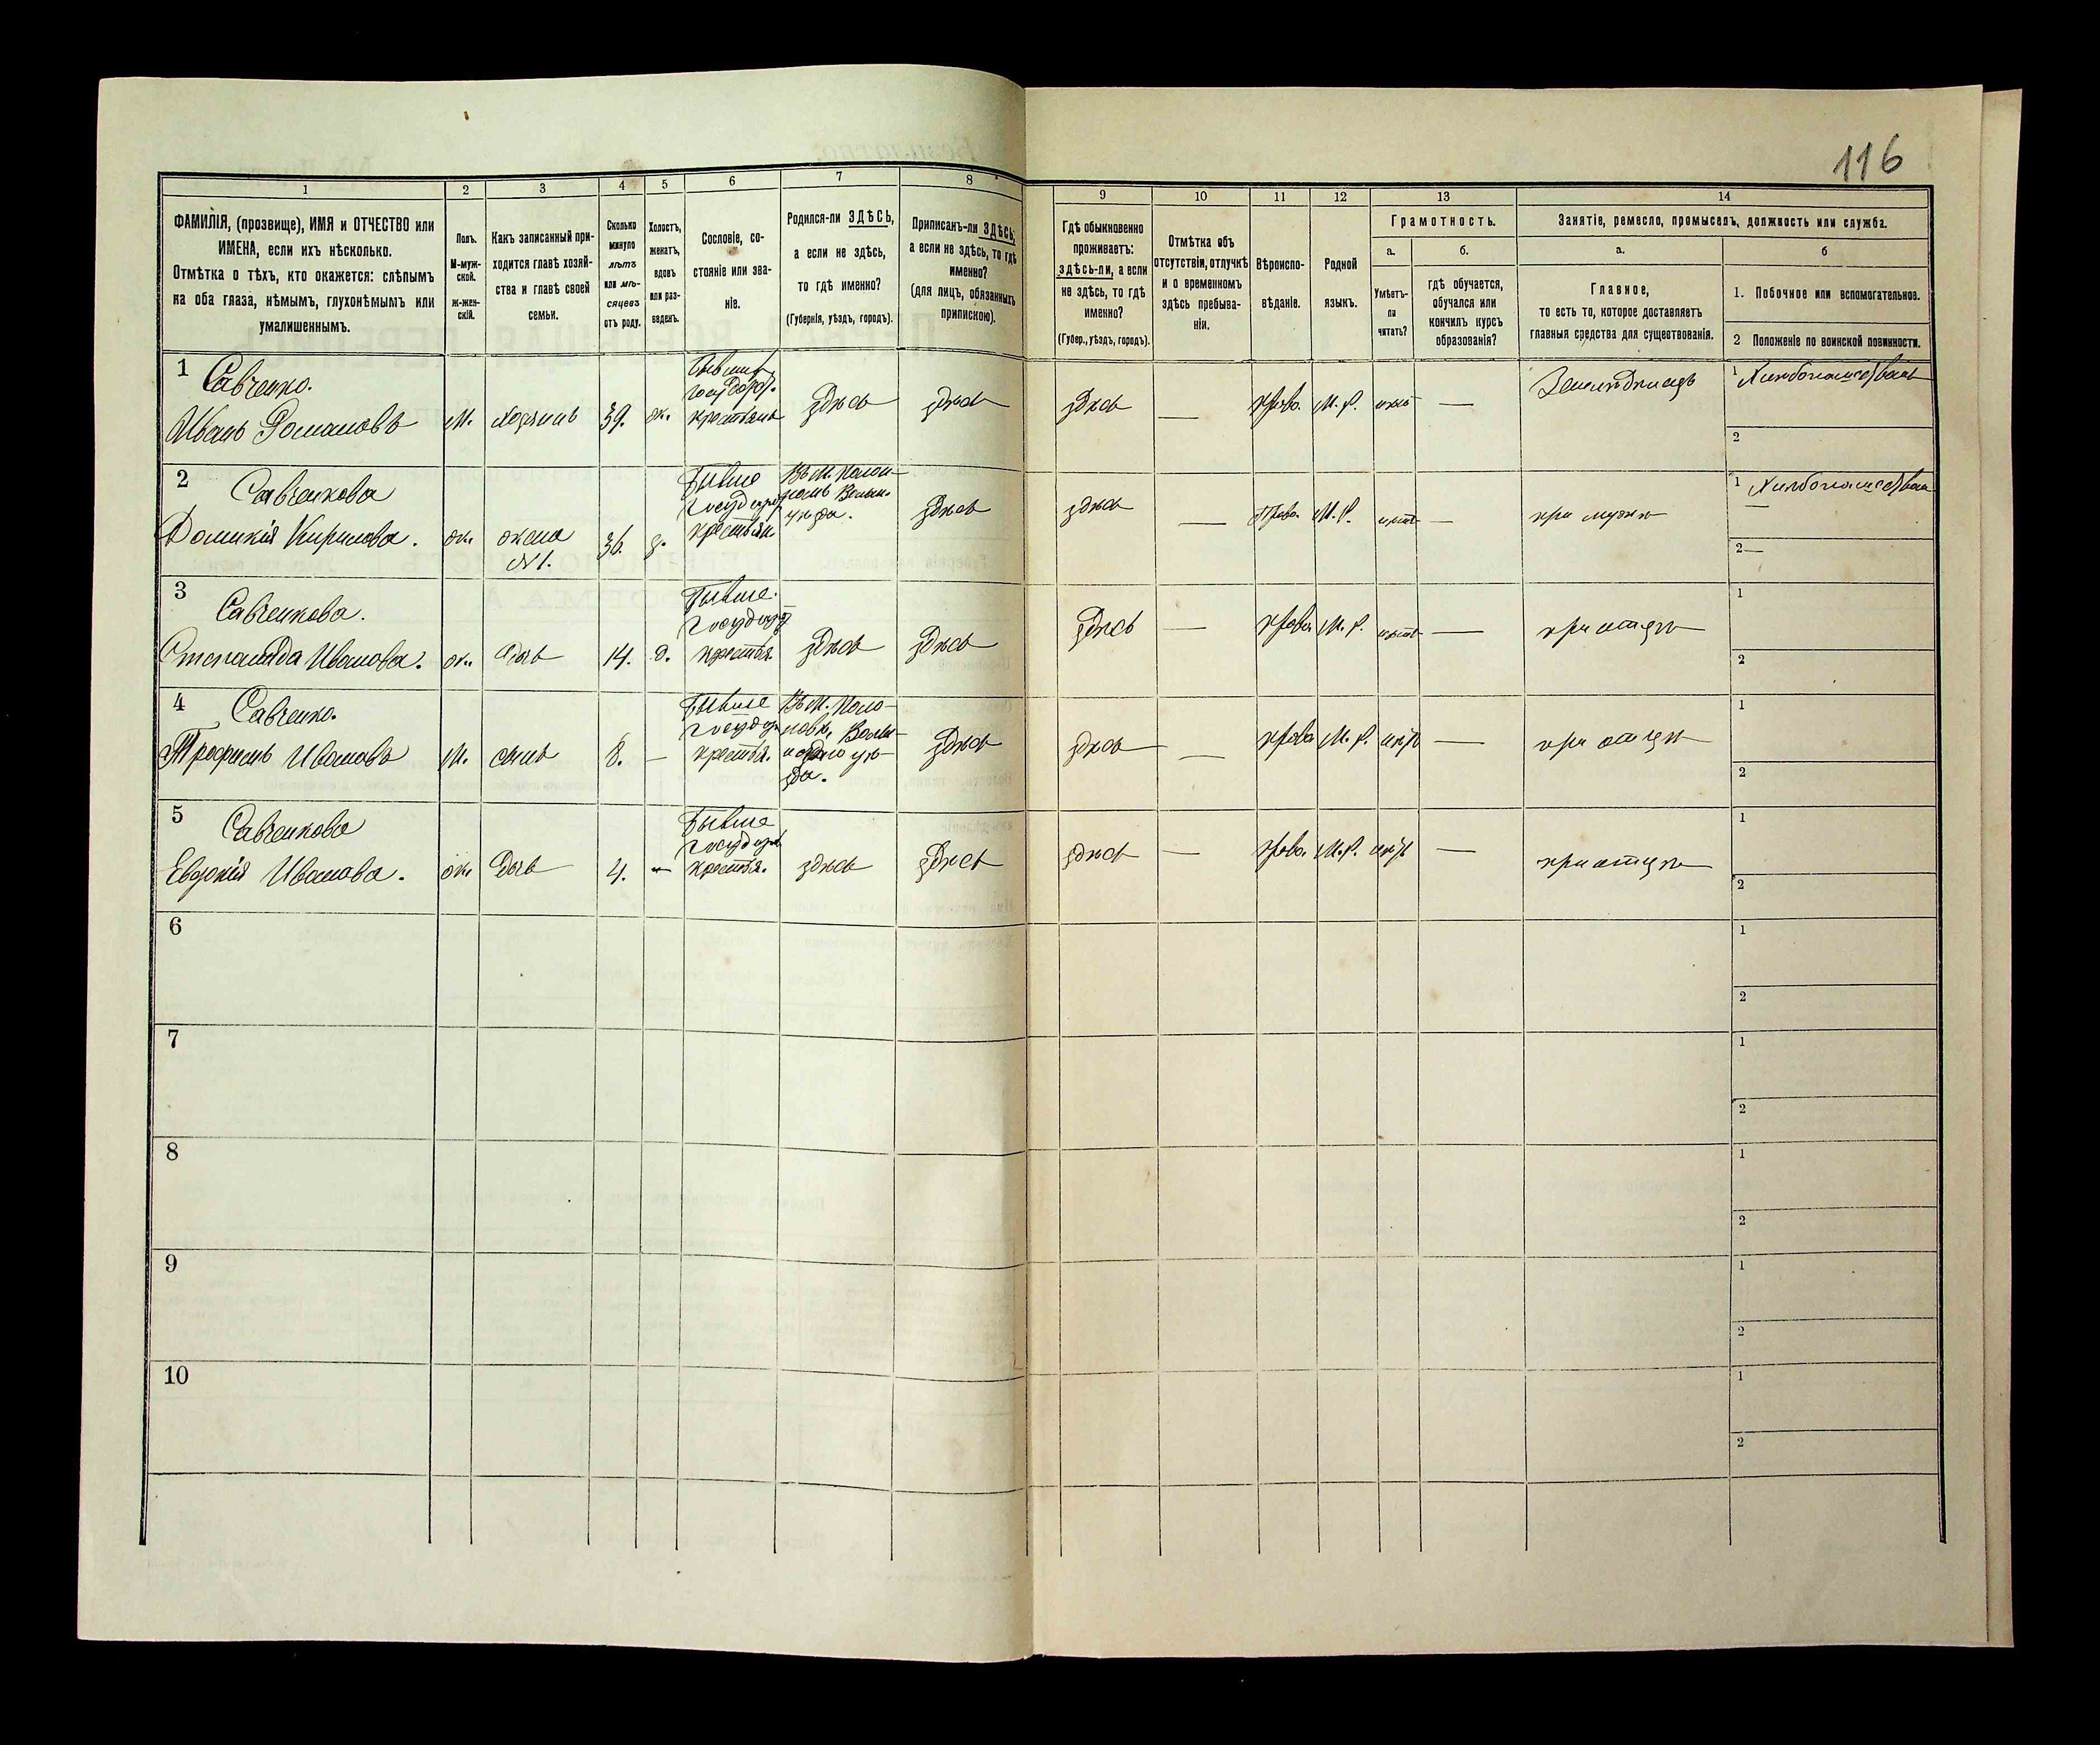 116
1
2
3
4
5
6
7
8
9
10
11
12
13
14
ФАМИЛІЯ, (прозвище), ИМЯ и ОТЧЕСТВО или
ИМЕНА, если ихъ нѣсколько.
Отмѣтка о тѣхъ, кто окажется: слѣпымъ
на оба глаза, нѣмымъ, глухонѣмымъ или
умалишеннымъ.
Полъ.
М-муж-
ской.
ж-жен-
скій.
Какъ записанный при-
ходится главѣ хозяй-
ства и главѣ своей
семьи.
Сколько
минуло
лѣтъ
или мѣ-
сяцевъ
отъ роду.
Холостъ,
женатъ,
вдовъ
или раз-
веденъ.
Сословіе, со-
стояніе или зва-
ніе.
Родился-ли ЗДѢСЬ,
а если не здѣсь,
то гдѣ именно?
(Губернія, уѣздъ, городъ).
Приписанъ-ли ЗДѢСЬ,
а если не здѣсь, то гдѣ
именно?
(для лицъ, обязанныхъ
припискою).
Гдѣ обыкновенно
проживаетъ:
здѣсь-ли, а если
не здѣсь, то гдѣ
именно?
(Губер., уѣздъ, городъ).
Отмѣтка объ
отсутствіи, отлучкѣ
и о временномъ
здѣсь пребыва-
ніи.
Вѣроиспо-
вѣданіе.
Родной
языкъ.
Грамотность.
а.
Умѣетъ-
ли
читать?
б.
гдѣ обучается,
обучался или
кончилъ курсъ
образованія?
Занятіе, ремесло, промыселъ, должность или служба.
а.
Главное,
то есть то, которое доставляетъ
главныя средства для существованія.
б
1. Побочное или вспомогательное.
2 Положеніе по воинской повинности.
1
Савченко.
Иванъ Романовъ
М.
хозяинъ
39.
ж.
Бывши
государ.
крестьянъ
здѣсь
здѣсь
здѣсь
—
Право.
М. Р.
—
Земледѣлецъ
1
2
2
Савченкова
Домникія Кирилова.
ж.
жена
№1.
36.
з.
Бывше
государ
крестьян.
Въ М.
уѣзда.
здѣсь
здѣсь
—
Право.
М. Р.
—
при мужѣ
1
—
2 —
3
Савченкова.
Степанида Иванова.
ж.
дочь
14.
д.
Бывше.
государ
крестья.
здѣсь
здѣсь
здѣсь
—
Право.
М. Р.
—
при отцѣ
1
2
4
Савченко.
Трофимъ Ивановъ
М.
сынъ
8.
—
Бывше
государ
крестья.
Въ М. Поло-
уѣ-
зда.
здѣсь
здѣсь
—
Право
М. Р.
—
при отцѣ
1
2
5
Савченкова
Евдокія Иванова.
ж.
дочь
4.
—
Бывше
государ
крестья.
здѣсь
здѣсь
здѣсь
—
Право.
М. Р.
—
при отцѣ
1
2
6
1
2
7
1
2
8
1
2
9
1
2
10
1
2